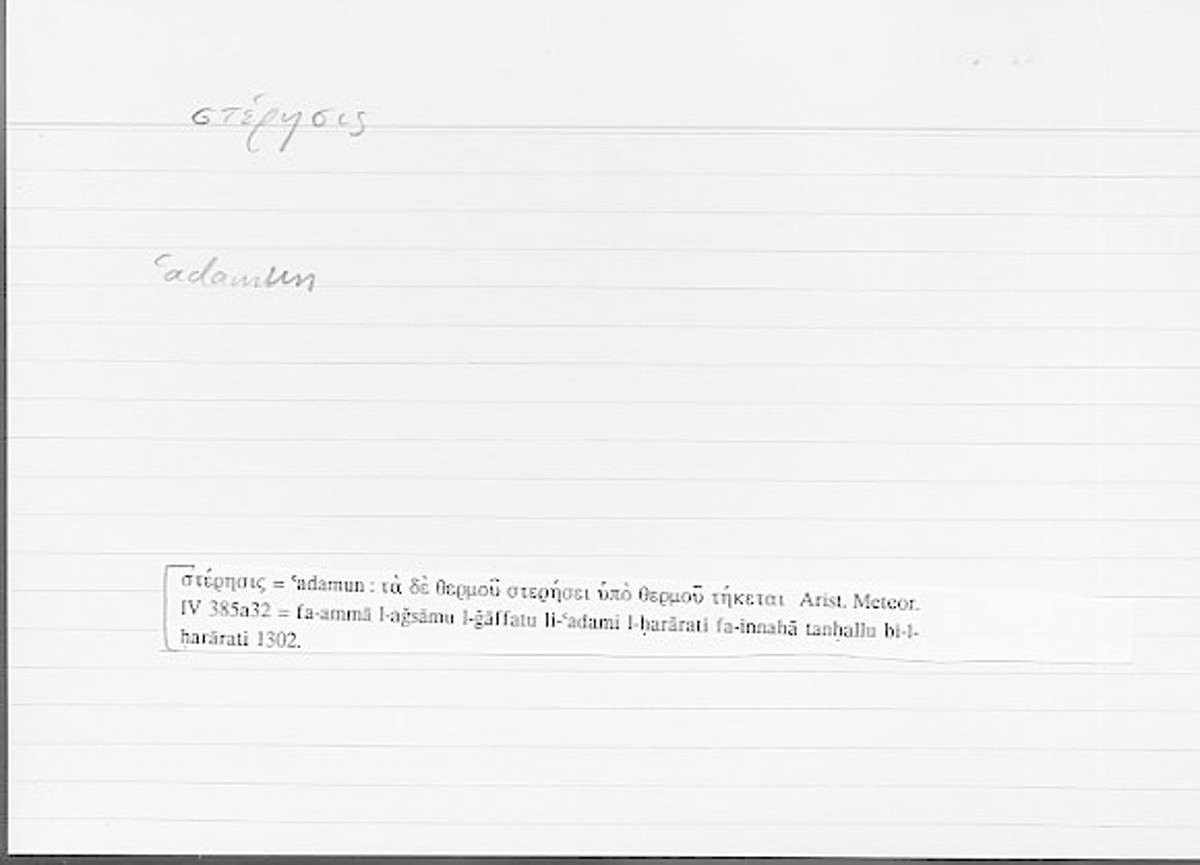 στέρησις
ʿadamun
στέρησις = ʿadamun : τὰ δὲ θερμοῦ στερήσει ὑπὸ θερμοῦ τήκεται Arist. Meteor.
IV 385a32 = fa-ammā l-aǧsāmu l-ǧāffatu li-ʿadami l-ḥarārati fa-innahā tanḥallu bi-l-
ḥarārati 1302.